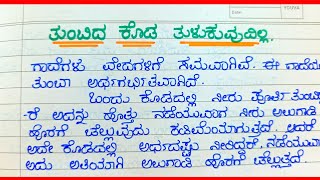 ತುಂಬಿದ ಕೊಡ ತುಳುಕುವುದಿಲ್ಲ.
ಗಾದೆಗಳು ವೇದಗಳಿಗೆ ಸಮವಾಗಿವೆ. ಈ ಗಾದೆಯು
ತುಂಬಾ ಅರ್ಥಗರ್ಭಿತವಾಗಿದೆ.
ಒಂದು ಕೊಡದಲ್ಲಿ ನೀರು ಪೂರ್ತಿ ತುಂಬಿ
-ರೆ ಅದನ್ನು ಹೊತ್ತು ನಡೆಯುವಾಗ ನೀರು ಅಲುಗಾಡಿ
ಹೊರಗೆ ಚೆಲ್ಲುವುದು ಕಡಿಮೆಯಾಗುತ್ತದೆ. ಆದರೆ
ಅದೇ ಕೊಡದಲ್ಲಿ ಅರ್ಧದಷ್ಟು ನೀರಿದ್ದರೆ, ನಡೆಯುವಾಗ
ಅದು ಅತಿಯಾಗಿ ಅಲುಗಾಡಿ ಹೊರಗೆ ಚೆಲ್ಲುತ್ತದೆ.